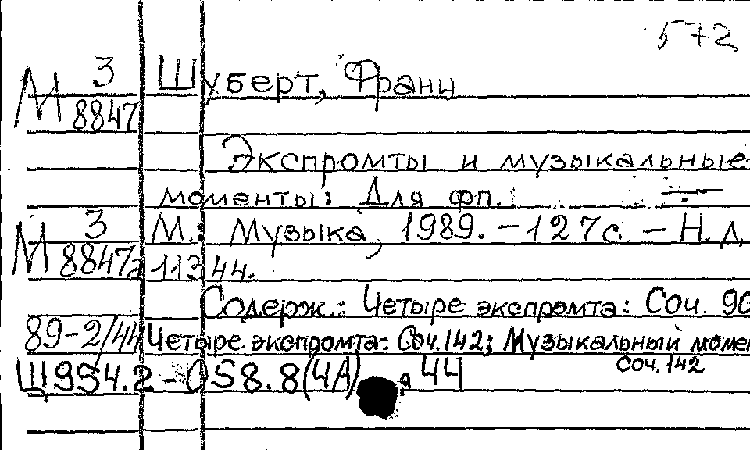 572
М 3/8847 Шуберт, Франц
Экспромты и музыкальные
моменты: Для фп.
М 3/8847а М.: Музыка, 1989. - 127 с. - Н.д.
11344.
Содерж.: Четыре экспромта: Соч. 90
89-2/44 Четыре экспромта: Соч. 142; Музыкальный момен
Соч. 142
Щ954.2-058.8(4А) , 44